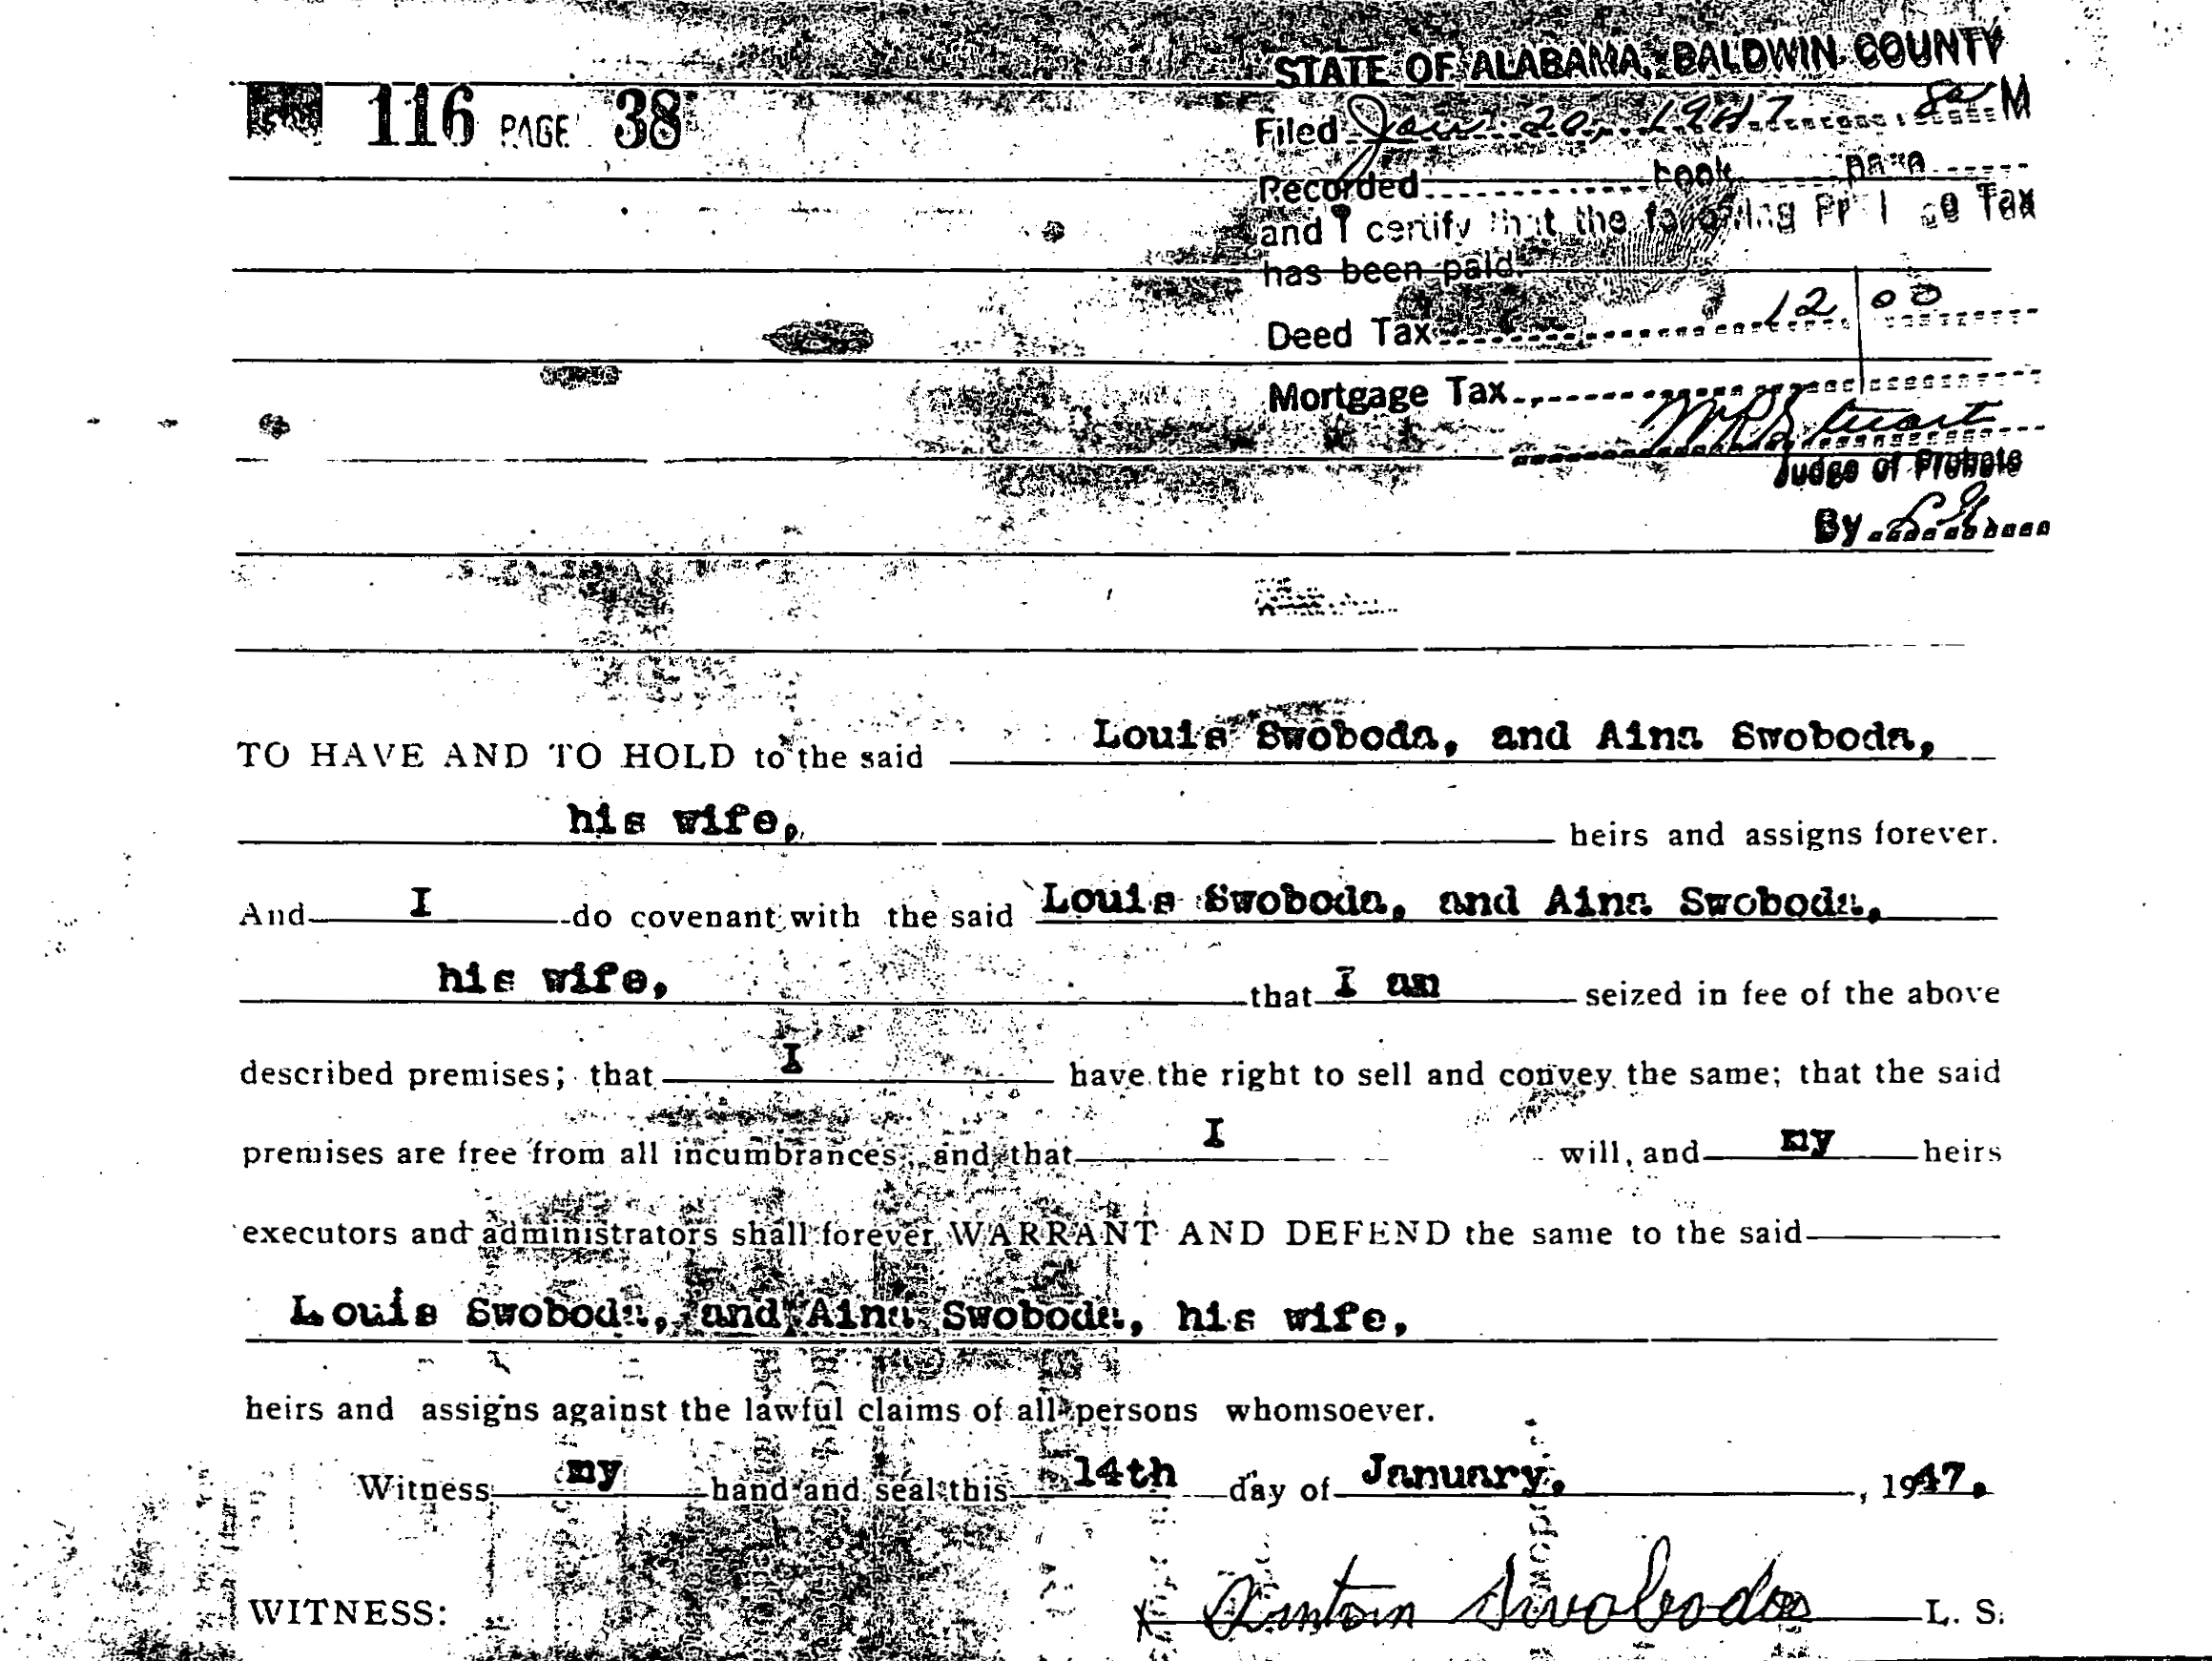 116 PAGE 38
STATE OF ALABAMA, BALDWIN COUNTY
Filed Jan 20, 1947 M
Recorded book page
and I certify that the following Tax
has been paid.
Deed Tax 12 00
Mortgage Tax
W R Stuart
Judge of Probate
By
TO HAVE AND TO HOLD to the said Louis Swoboda, and Aina Swoboda,
his wife, heirs and assigns forever.
And I do covenant with the said Louis Swoboda, and Aina Swoboda,
his wife, that I am seized in fee of the above
described premises; that I have the right to sell and convey the same; that the said
premises are free from all incumbrances; and that I will, and my heirs
executors and administrators shall forever WARRANT AND DEFEND the same to the said
Louis Swoboda, and Aina Swoboda, his wife,
heirs and assigns against the lawful claims of all persons whomsoever.
Witness my hand and seal this 14th day of January, 1947.
WITNESS: X Antoin Swoboda L. S.